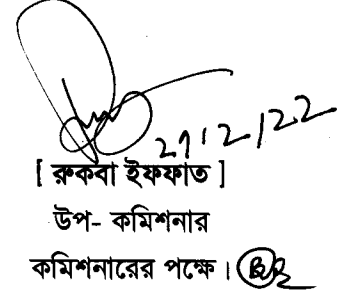 [ রুকবা ইফফাত ]
উপ- কমিশনার
কমিশনারের পক্ষে ।